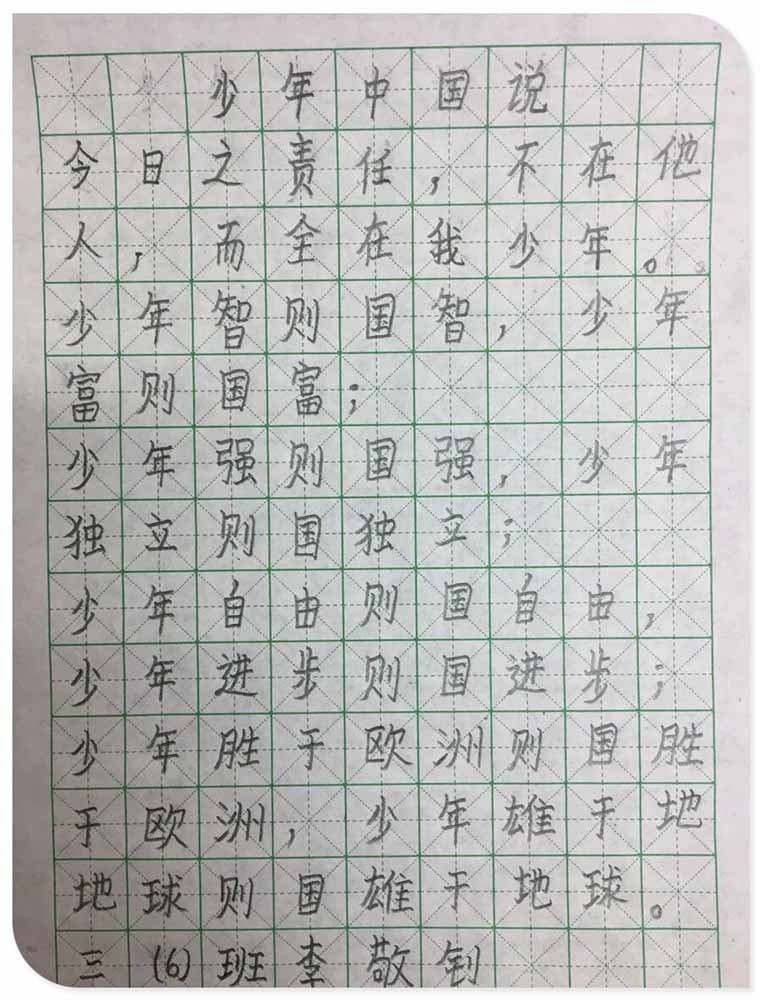 少年中国说
今日之责任，不在他
人，而全在我少年。
少年智则国智，少年
富则国富；
少年强则国强，少年
独立则国独立；
少年自由则国自由，
少年进步则国进步；
少年胜于欧洲则国胜
于欧洲，少年雄于地
地球则国雄于地球。
三(6)班李敬钊